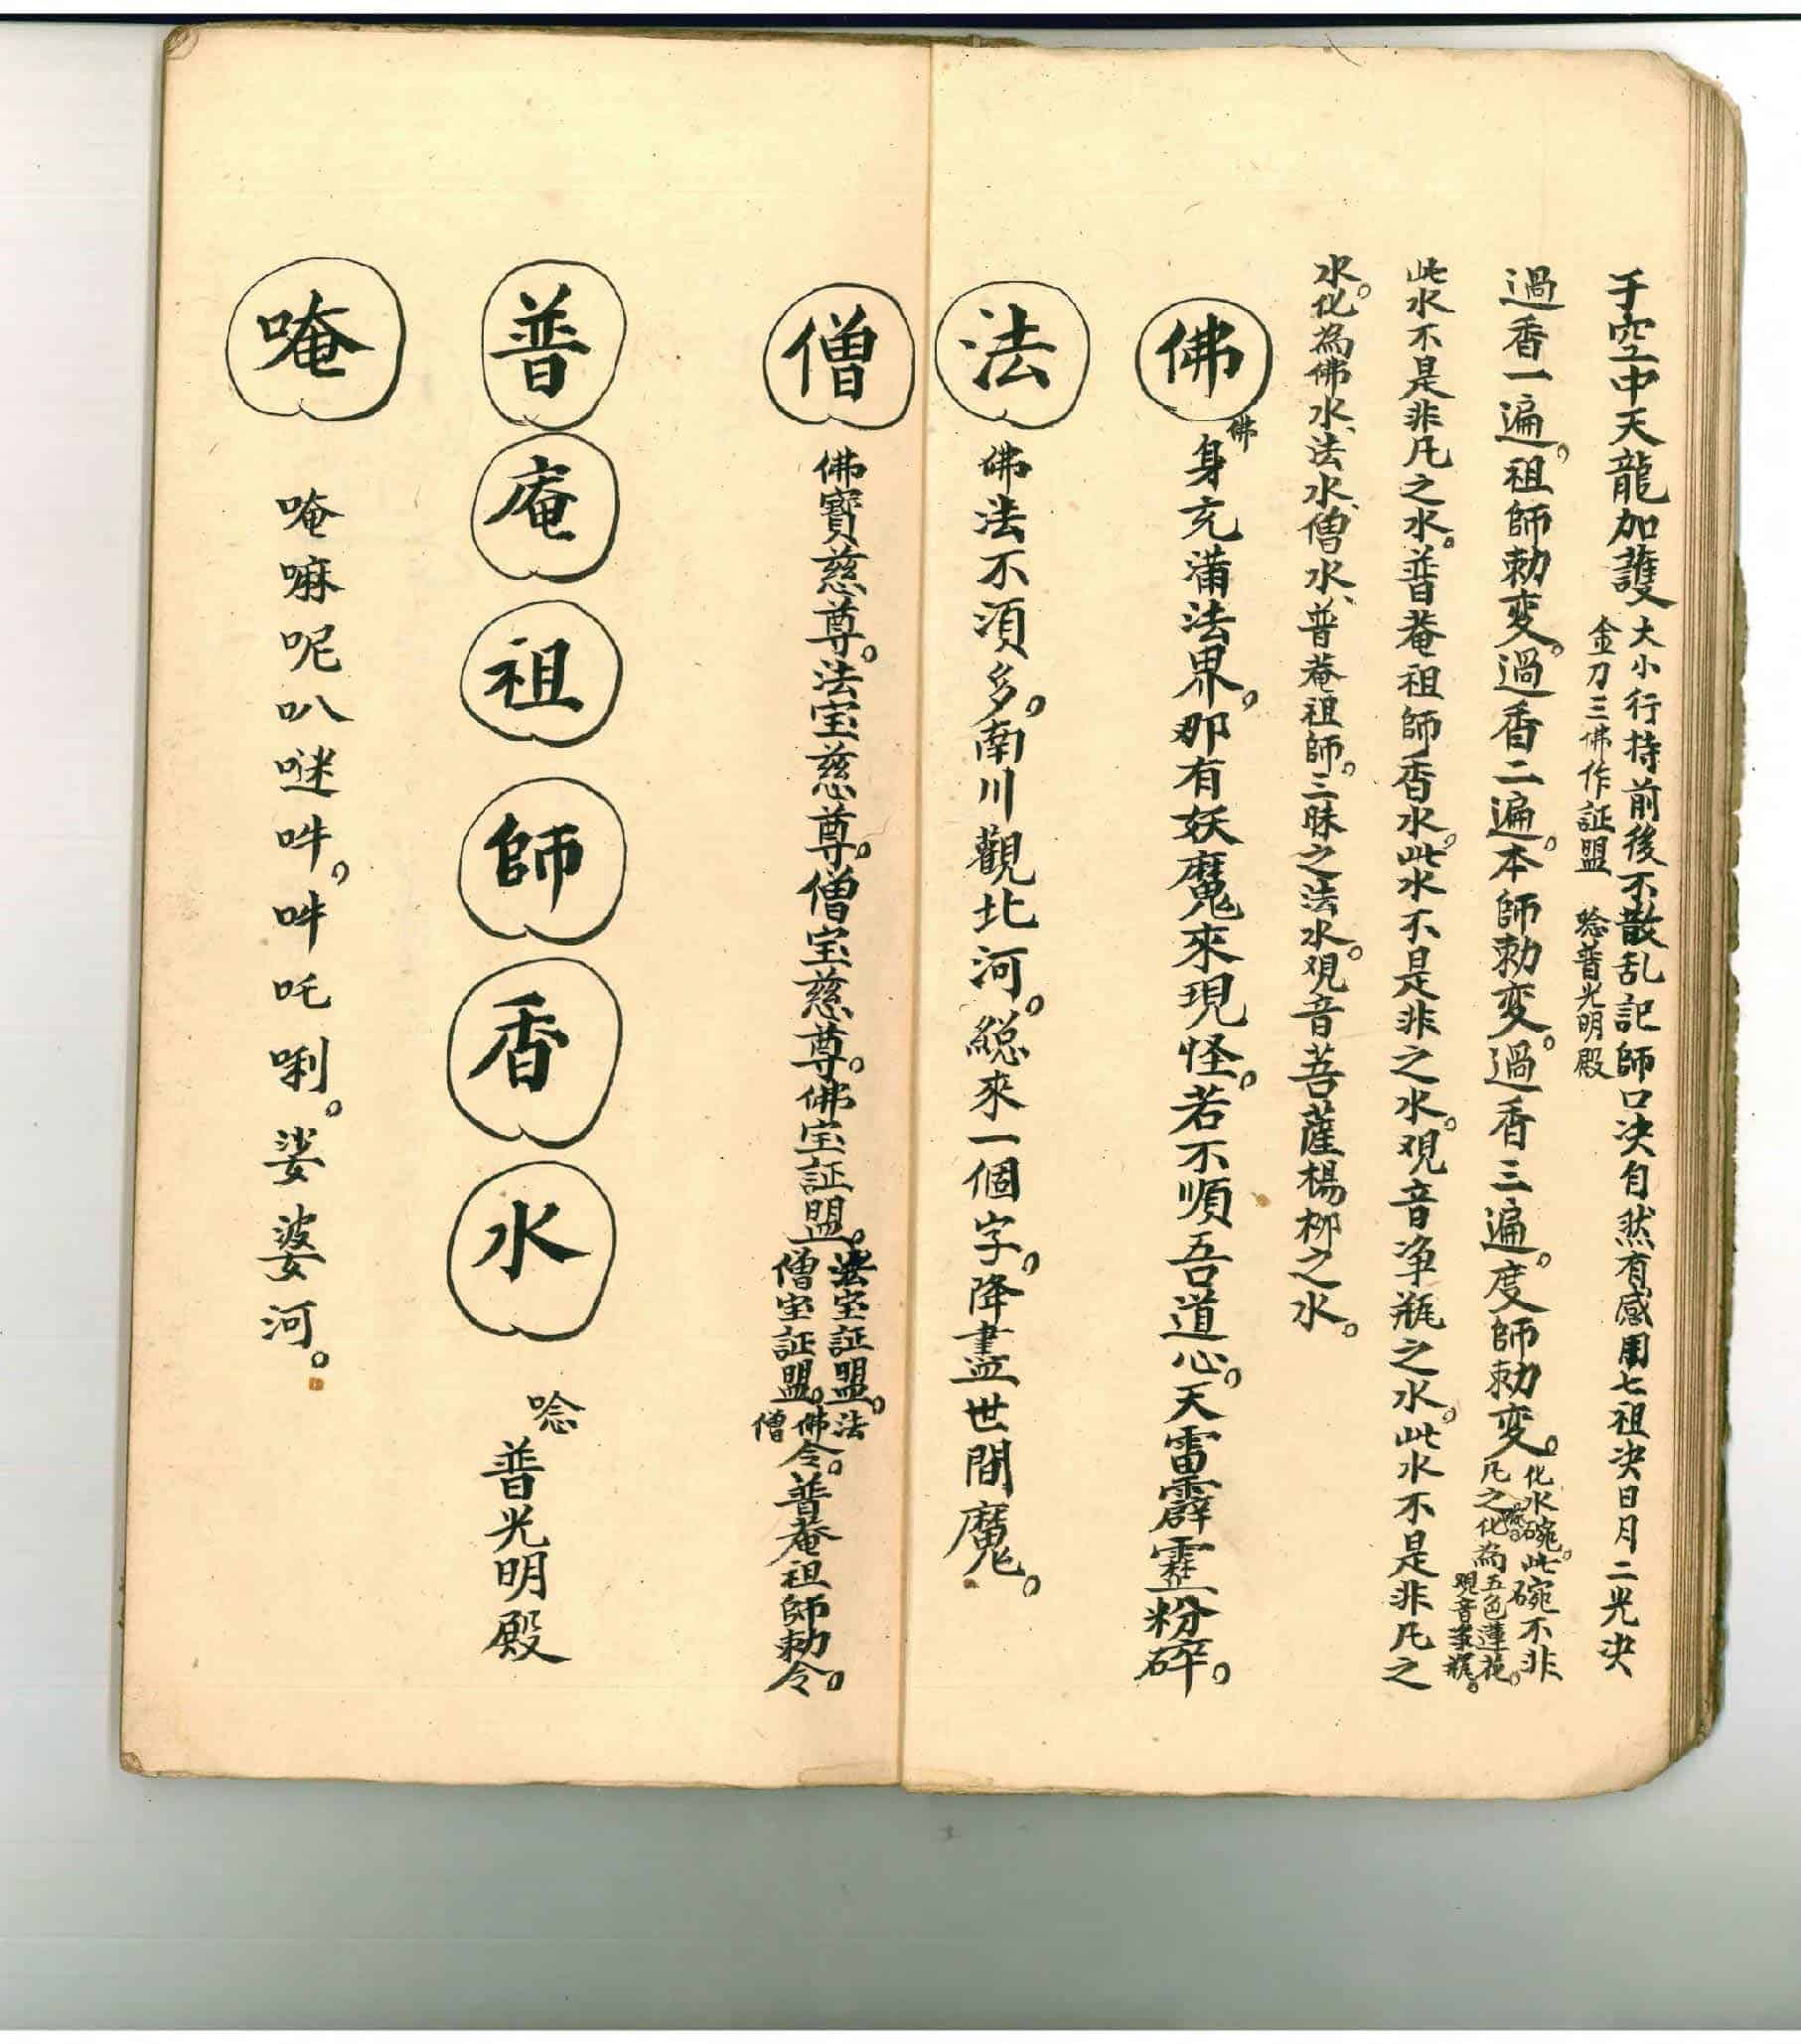 于空中天龍加護 大小行持前後不散乱記師口决自然有感用七祖决日月二光决
金刀三佛作証盟 唸普光明殿
過香一遍。祖師勅变。過香二遍。本師勅变。過香三遍。度師勅变。化水碗。此碗不非
凡之碗。化為五色蓮花。
觀音净瓶。
此水不是非凡之水。普菴祖師香水。此水不是非之水。观音净瓶之水。此水不是非凡之
水。化為佛水、法水、僧水、普菴祖師。三昧之法水。观音菩薩楊柳之水。
佛 佛身充滿法界。那有妖魔來現怪。若不順吾道心。天雷霹靂粉碎。
法 佛法不須多。南川觀北河。總來一個字。降盡世間魔。
僧 佛寶慈尊。法宝慈尊。僧宝慈尊。佛宝証盟。法宝証盟。僧宝証盟。佛法僧令。普菴祖師勅令。
普庵祖師香水 唸普光明殿
唵 唵嘛呢叭㖷吽。吽吒唎。娑婆河。